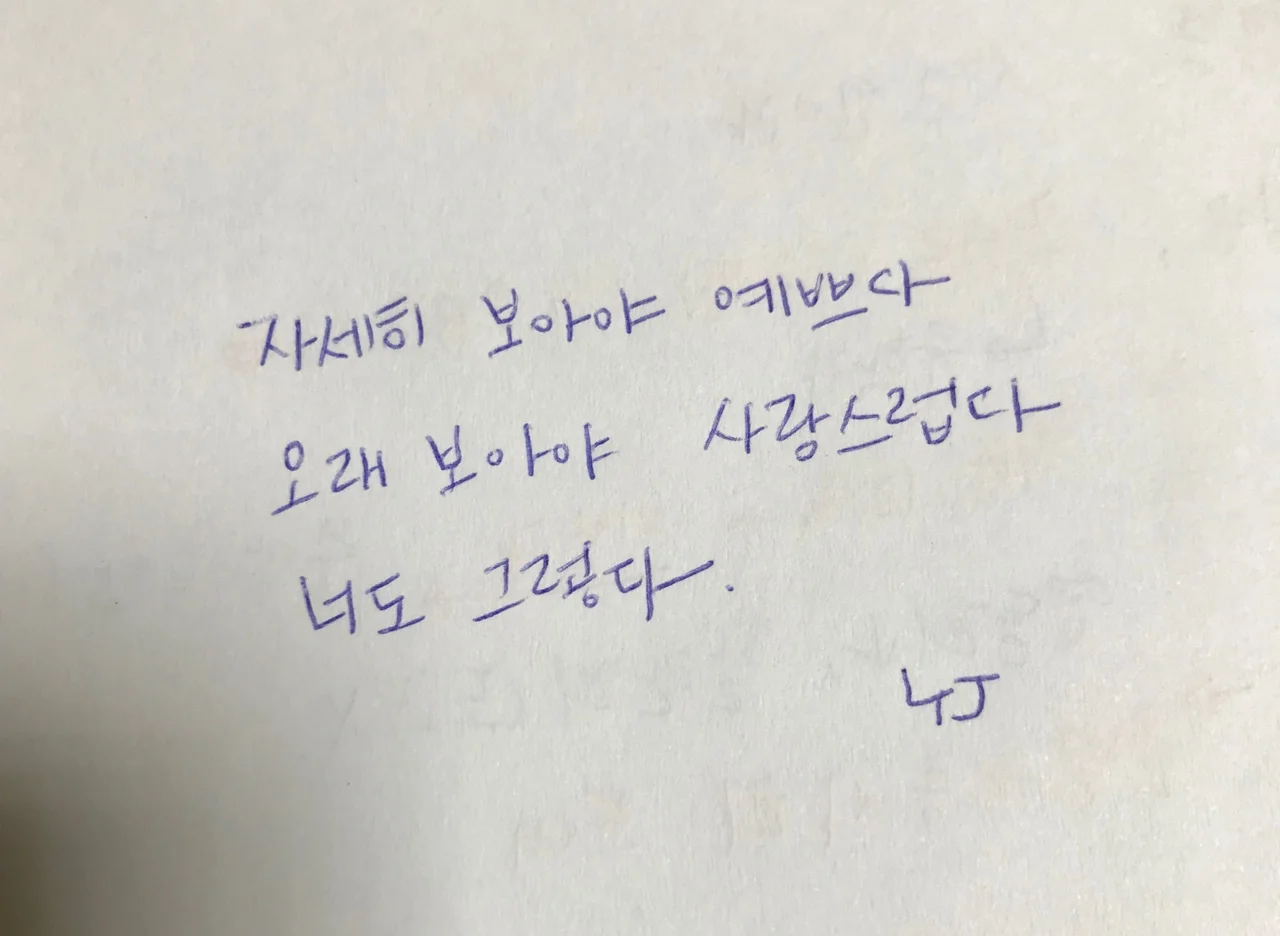 자세히 보아야 예쁘다
오래 보아야 사랑스럽다
너도 그렇다.